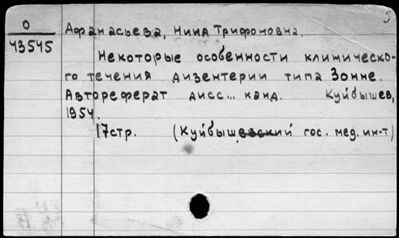 О
43545
Афанасьева, Нина Трифоновна.
Некоторые особенности клиническо-
го течения дизентерии типа Зонне.
Автореферат дисс... канд. Куйбышев,
1954.
17стр. (Куйбышевский гос. мед. ин-т)